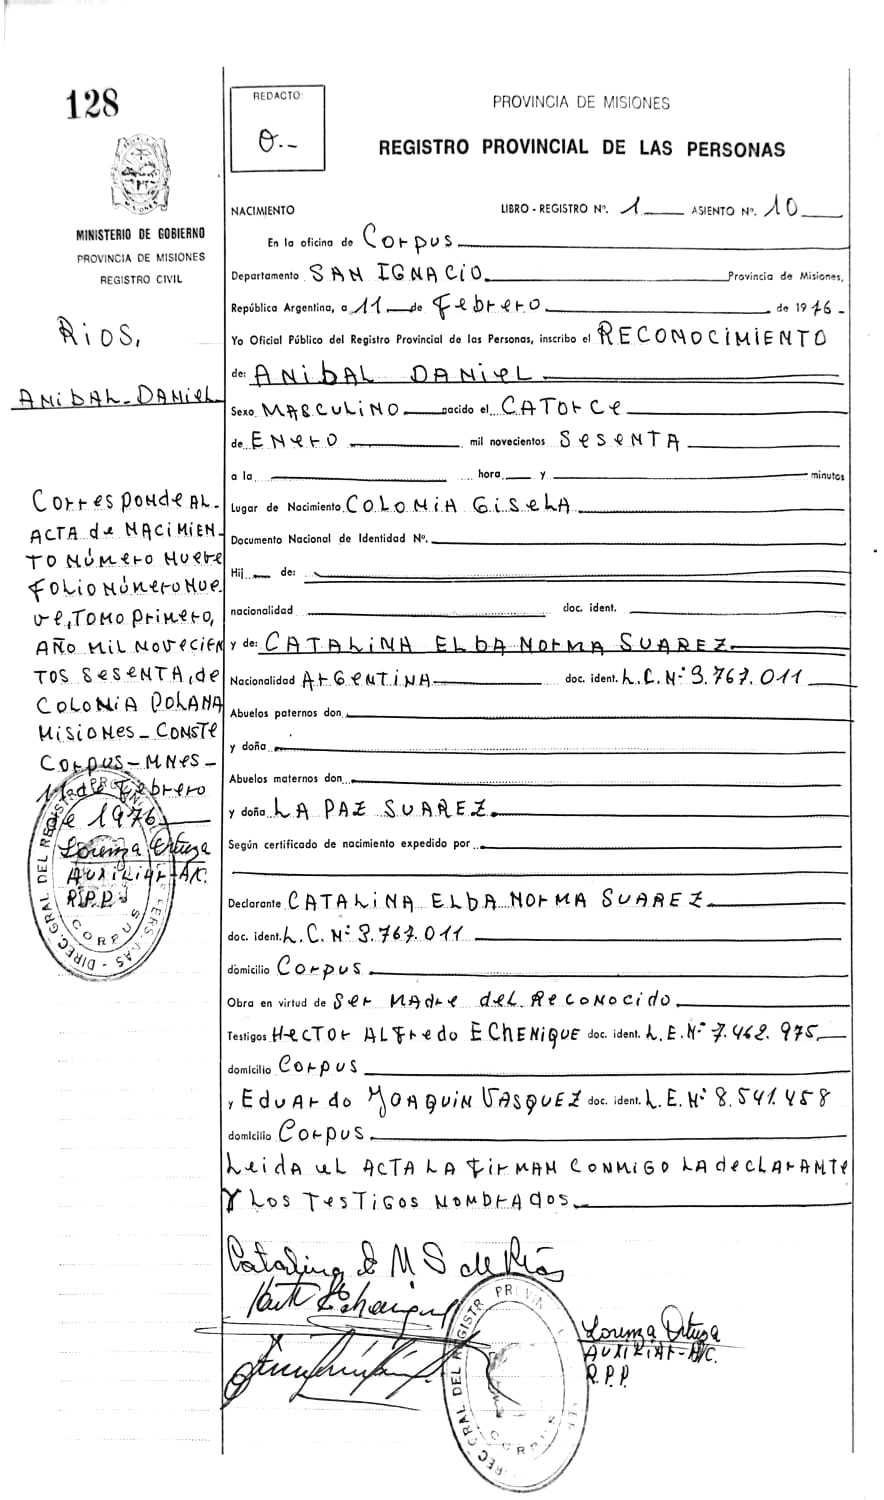 128
REDACTO:
O.--
PROVINCIA DE MISIONES
REGISTRO PROVINCIAL DE LAS PERSONAS
MINISTERIO DE GOBIERNO
PROVINCIA DE MISIONES
REGISTRO CIVIL
RIOS,
ANIBAL-DANIEL
Corresponde AL-
ACTA de NACIMIEN-
TO NÚMERO NUEVE
FOLIO NÚMERO NUE-
VE, TOMO Primero,
AÑO MIL NOVECIEN
TOS SESENTA, de
COLONIA POLANA
MISIONES - CONSTE
Corpus - MNES -
11 de Febrero
de 1976
Lorenza Ortega
AUXILIAR - A/C.
R.P.P.
DIREC. GRAL DEL REGISTR PROVIN PERS. AS - CORPUS
NACIMIENTO LIBRO - REGISTRO Nº. 1 ASIENTO Nº. 10
En la oficina de Corpus
Departamento SAN IGNACIO Provincia de Misiones,
República Argentina, a 11 de Febrero de 1976-
Yo Oficial Público del Registro Provincial de las Personas, inscribo el RECONOCIMIENTO
de: ANIBAL DANIEL
Sexo MASCULINO nacido el CATORCE
de ENERO mil novecientos SESENTA
a la hora y minutos
Lugar de Nacimiento COLONIA GISELA
Documento Nacional de Identidad Nº.
Hij de:
nacionalidad doc. ident.
y de: CATALINA ELBA NORMA SUAREZ
Nacionalidad ARGENTINA doc. ident. L.C. Nº 3.767.011
Abuelos paternos don
y doña
Abuelos maternos don
y doña LA PAZ SUAREZ
Según certificado de nacimiento expedido por
Declarante CATALINA ELBA NORMA SUAREZ
doc. ident. L.C. Nº 3.767.011
domicilio Corpus
Obra en virtud de SER MADRE DEL RECONOCIDO
Testigos HECTOR ALFREDO ECHENIQUE doc. ident. L.E. Nº 7.462.975
domicilio Corpus
y EDUARDO JOAQUIN VASQUEZ doc. ident. L.E. Nº 8.541.458
domicilio Corpus
Leida el ACTA LA FIRMAN CONMIGO LA DECLARANTE
Y LOS TESTIGOS NOMBRADOS
Catalina E N S de Ríos
Lorenza Ortega
AUXILIAR - A/C.
R.P.P.
DIREC GRAL DEL REGISTR PROVIN CORPUS